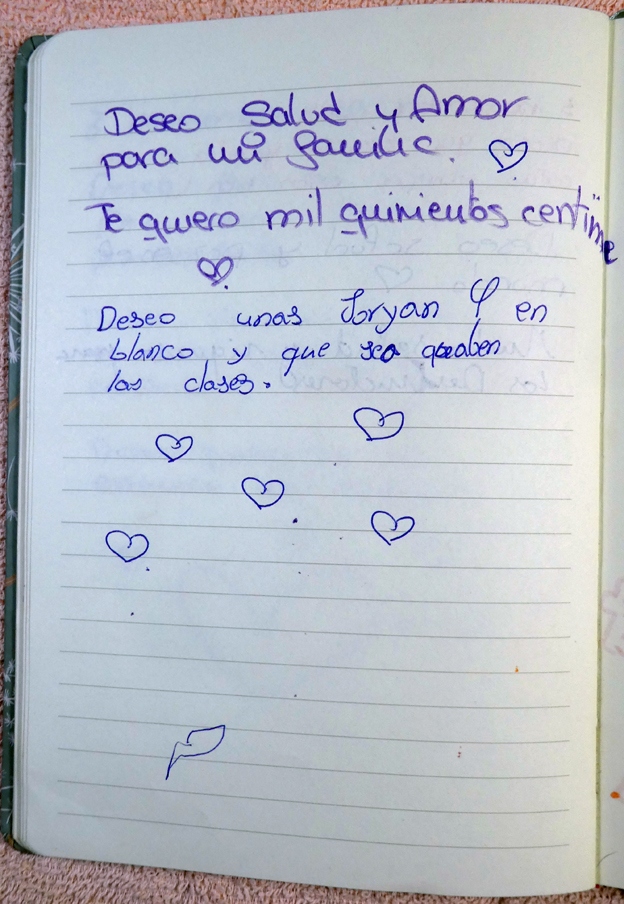 Deseo Salud y Amor
para mi familia.
Te quiero mil quinientos centime
Deseo unas Joryan 4 en
blanco y que se acaben
las clases.